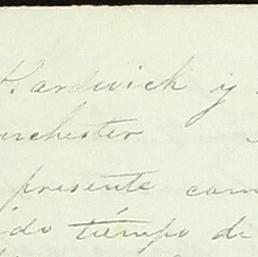 Hardwick y
nchester
presente com
ido tiempo de